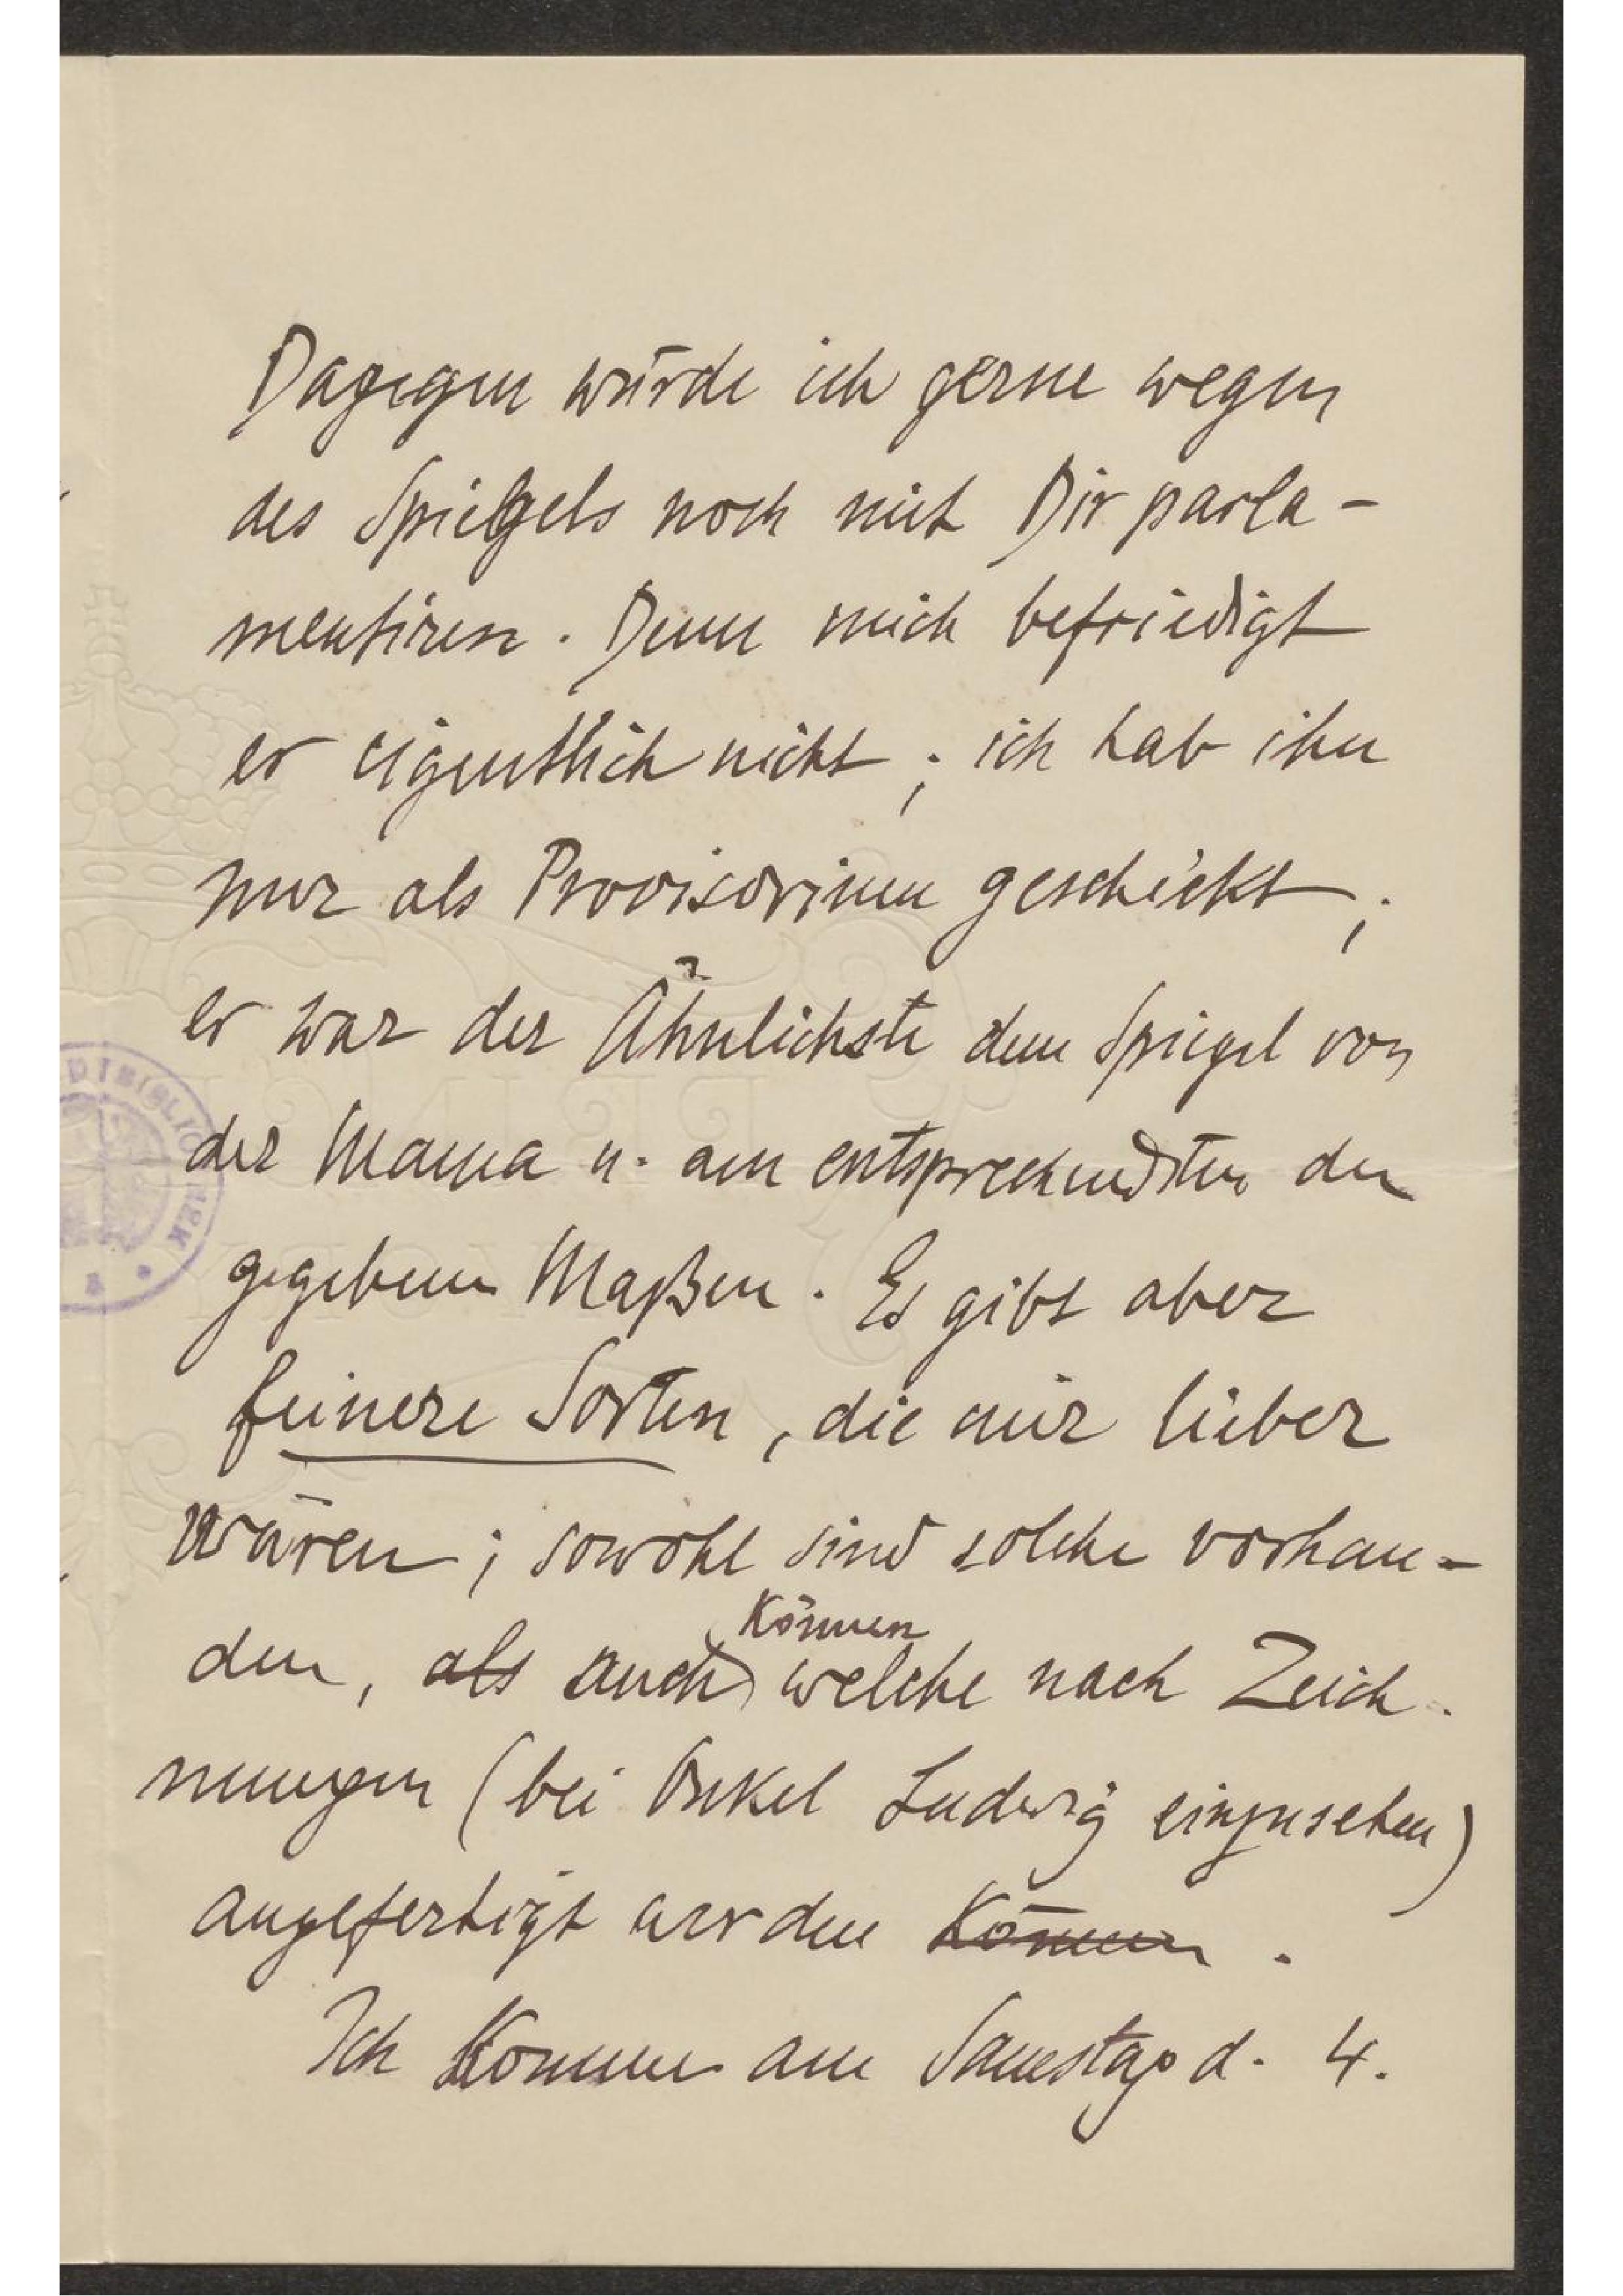 Dagegen würde ich gerne wegen
des Spiegels noch mit Dir parla-
mentiren. Denn mich befriedigt
er eigentlich nicht; ich hab ihn
nur als Provisorium geschickt;
er war der Ähnlichste dem Spiegel von
der Mama u. am entsprechendsten den
gegebenen Maßen. Es gibt aber
feinere Sorten, die mir lieber
wären; sowohl sind solche vorhan-
können
den, als auch welche nach Zeich-
nungen (bei Onkel Ludwig einzusehen)
angefertigt werden können.
Ich komme am Samstag d. 4.